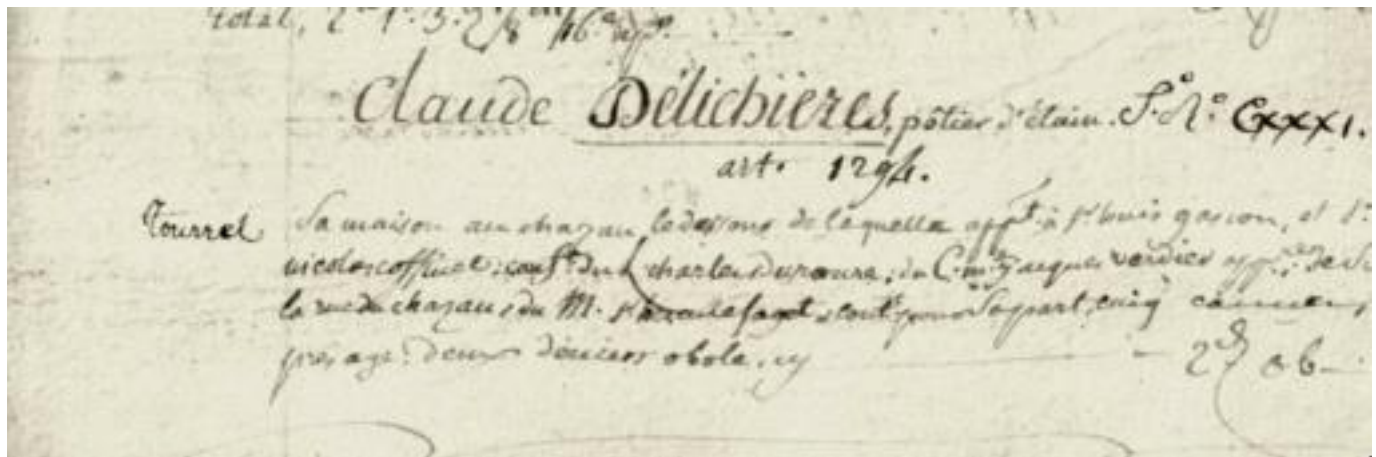 total,
Claude Délichïères, pôtier d'étain. S. N.° CXXXI.
art. 1294.
Tourrel Sa maison au chazau, le dessous de laquelle app.t à s.r louis gascon, et s.r
nicolas coffinet: conf.te du L charles duroure, du C. jacques verdier app.
la rue du chazau, du M. s.r fages, cont. pour sa part, cinq cannes,
presage: deux deniers obole, cy 2 d ob